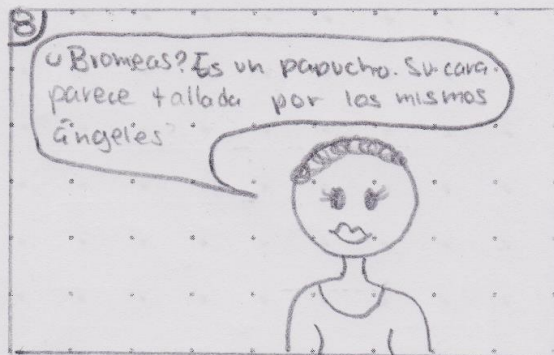 8
¿Bromeas? Es un papucho. Su cara
parece tallada por los mismos
ángeles